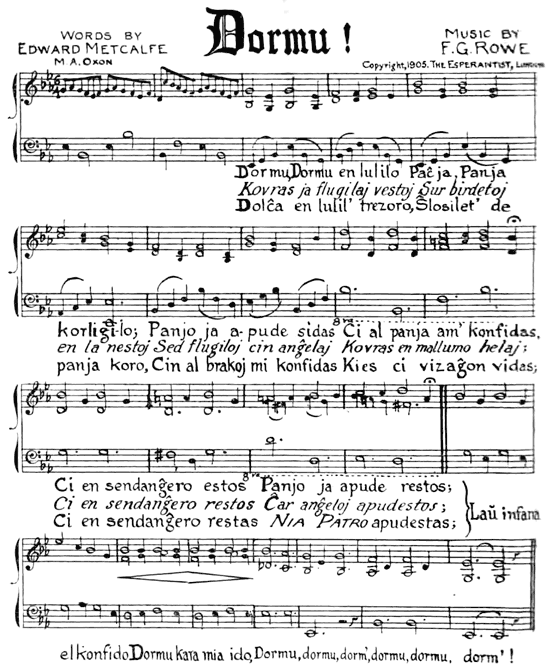 WORDS BY
EDWARD METCALFE
M.A. OXON
Dormu !
MUSIC BY
F.G. ROWE
Copyright, 1905. THE ESPERANTIST, London
Dormu, Dormu en lulilo Paĉja, Panja
Kovras ja flugilaj vestoj Sur birdetoj
Dolĉa en lulil' trezoro, Ŝlosilet' de
korligi̇lo; Panjo ja a-pude sidas Ci al panja am' konfidas,
en la nestoj Sed flugiloj cin anĝelaj Kovras en mallumo helaj;
panja koro, Cin al brakoj mi konfidas Kies ci vizaĝon vidas;
8va
Ci en sendanĝero estos Panjo ja apude restos;
Ci en sendanĝero restos Ĉar anĝeloj apudestos;
Ci en sendanĝero restas NIA PATRO apudestas;
Laŭ infana
8va
elkonfido Dormu kara mia ido, Dormu, dormu, dorm', dormu, dormu, dorm' !